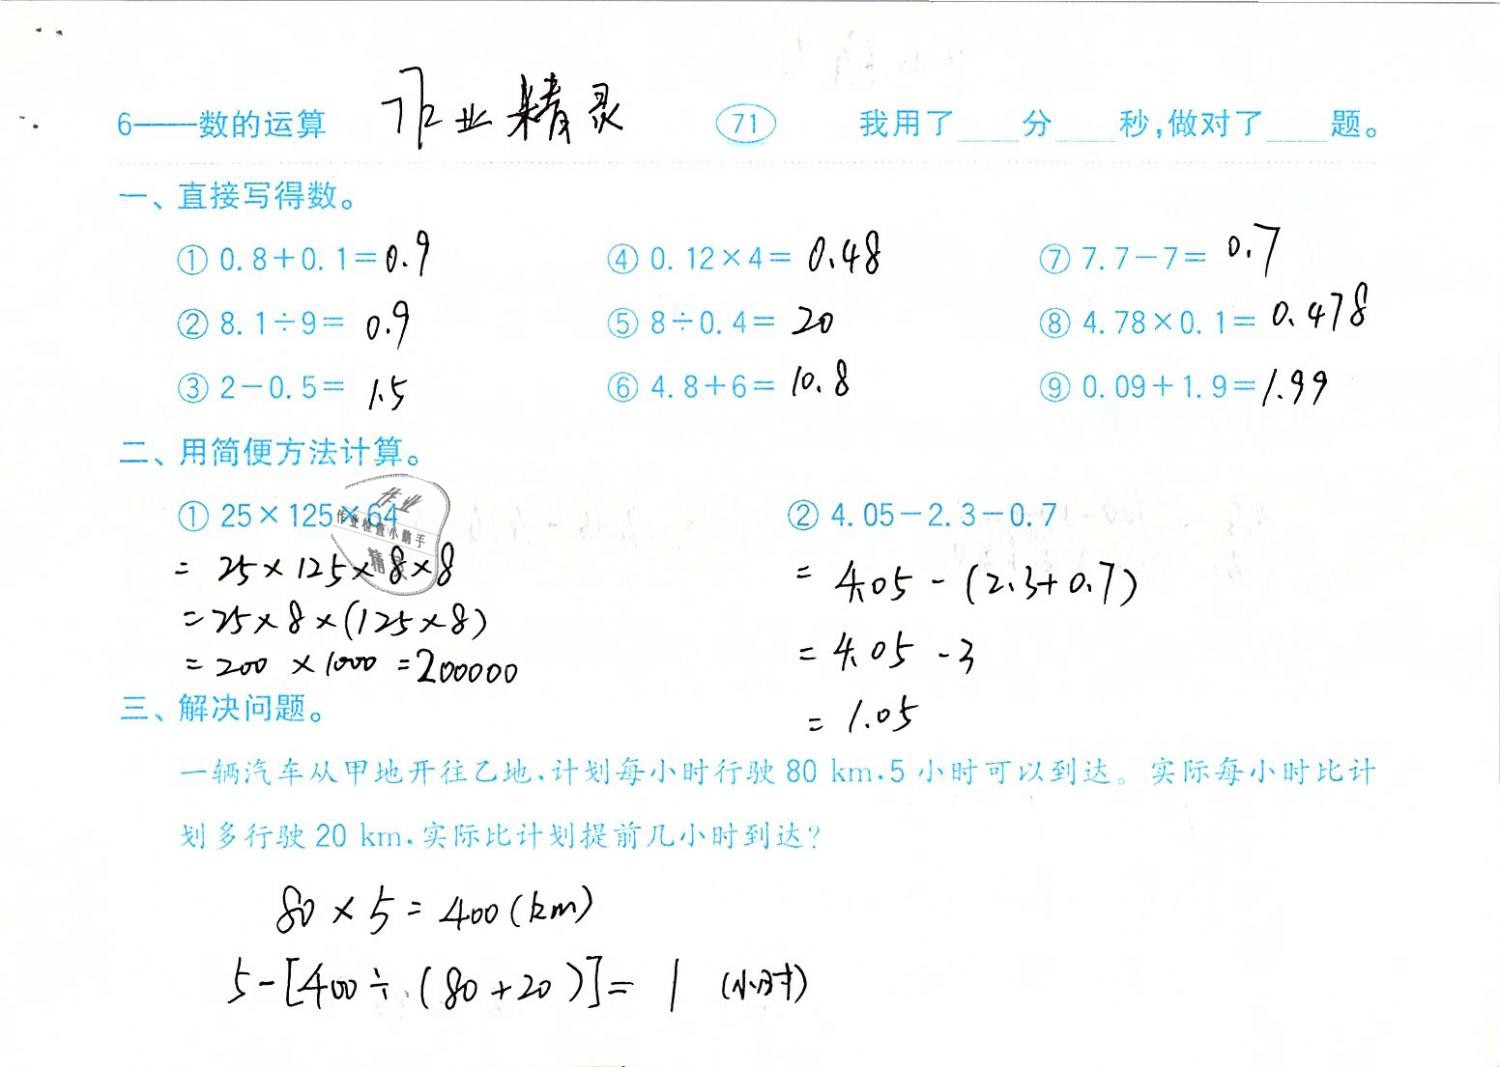 6——数的运算 作业精灵 71 我用了____分____秒,做对了____题。
一、直接写得数。
① 0.8+0.1=0.9 ④ 0.12×4=0.48 ⑦ 7.7-7=0.7
② 8.1÷9=0.9 ⑤ 8÷0.4=20 ⑧ 4.78×0.1=0.478
③ 2-0.5=1.5 ⑥ 4.8+6=10.8 ⑨ 0.09+1.9=1.99
二、用简便方法计算。
作业
① 25×125×64 ② 4.05-2.3-0.7
作业检查小助手
精灵
= 25×125×8×8 = 4.05-(2.3+0.7)
=25×8×(125×8) =4.05-3
=200×1000=200000 =1.05
三、解决问题。
一辆汽车从甲地开往乙地,计划每小时行驶80 km,5小时可以到达。实际每小时比计
划多行驶20 km,实际比计划提前几小时到达?
80×5=400(km)
5-[400÷(80+20)]=1(小时)